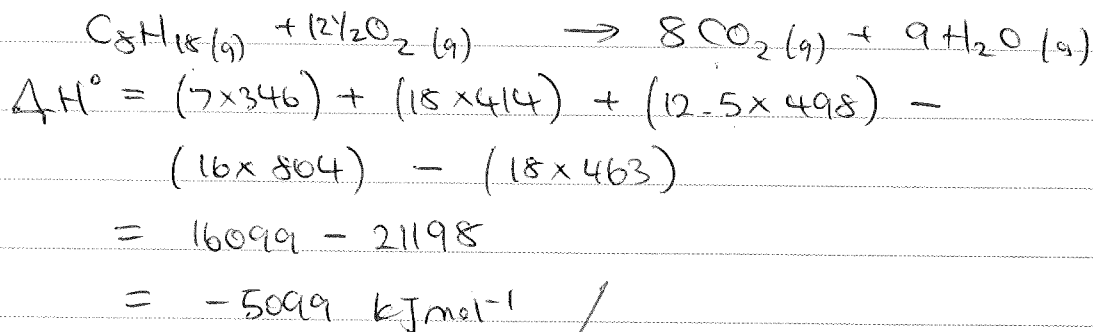 C₈H₁₈(g) + 12½O₂(g) → 8CO₂(g) + 9H₂O(g)
ΔH° = (7×346) + (18×414) + (12.5×498) −
(16×804) − (18×463)
= 16099 − 21198
= -5099 kJmol⁻¹ /